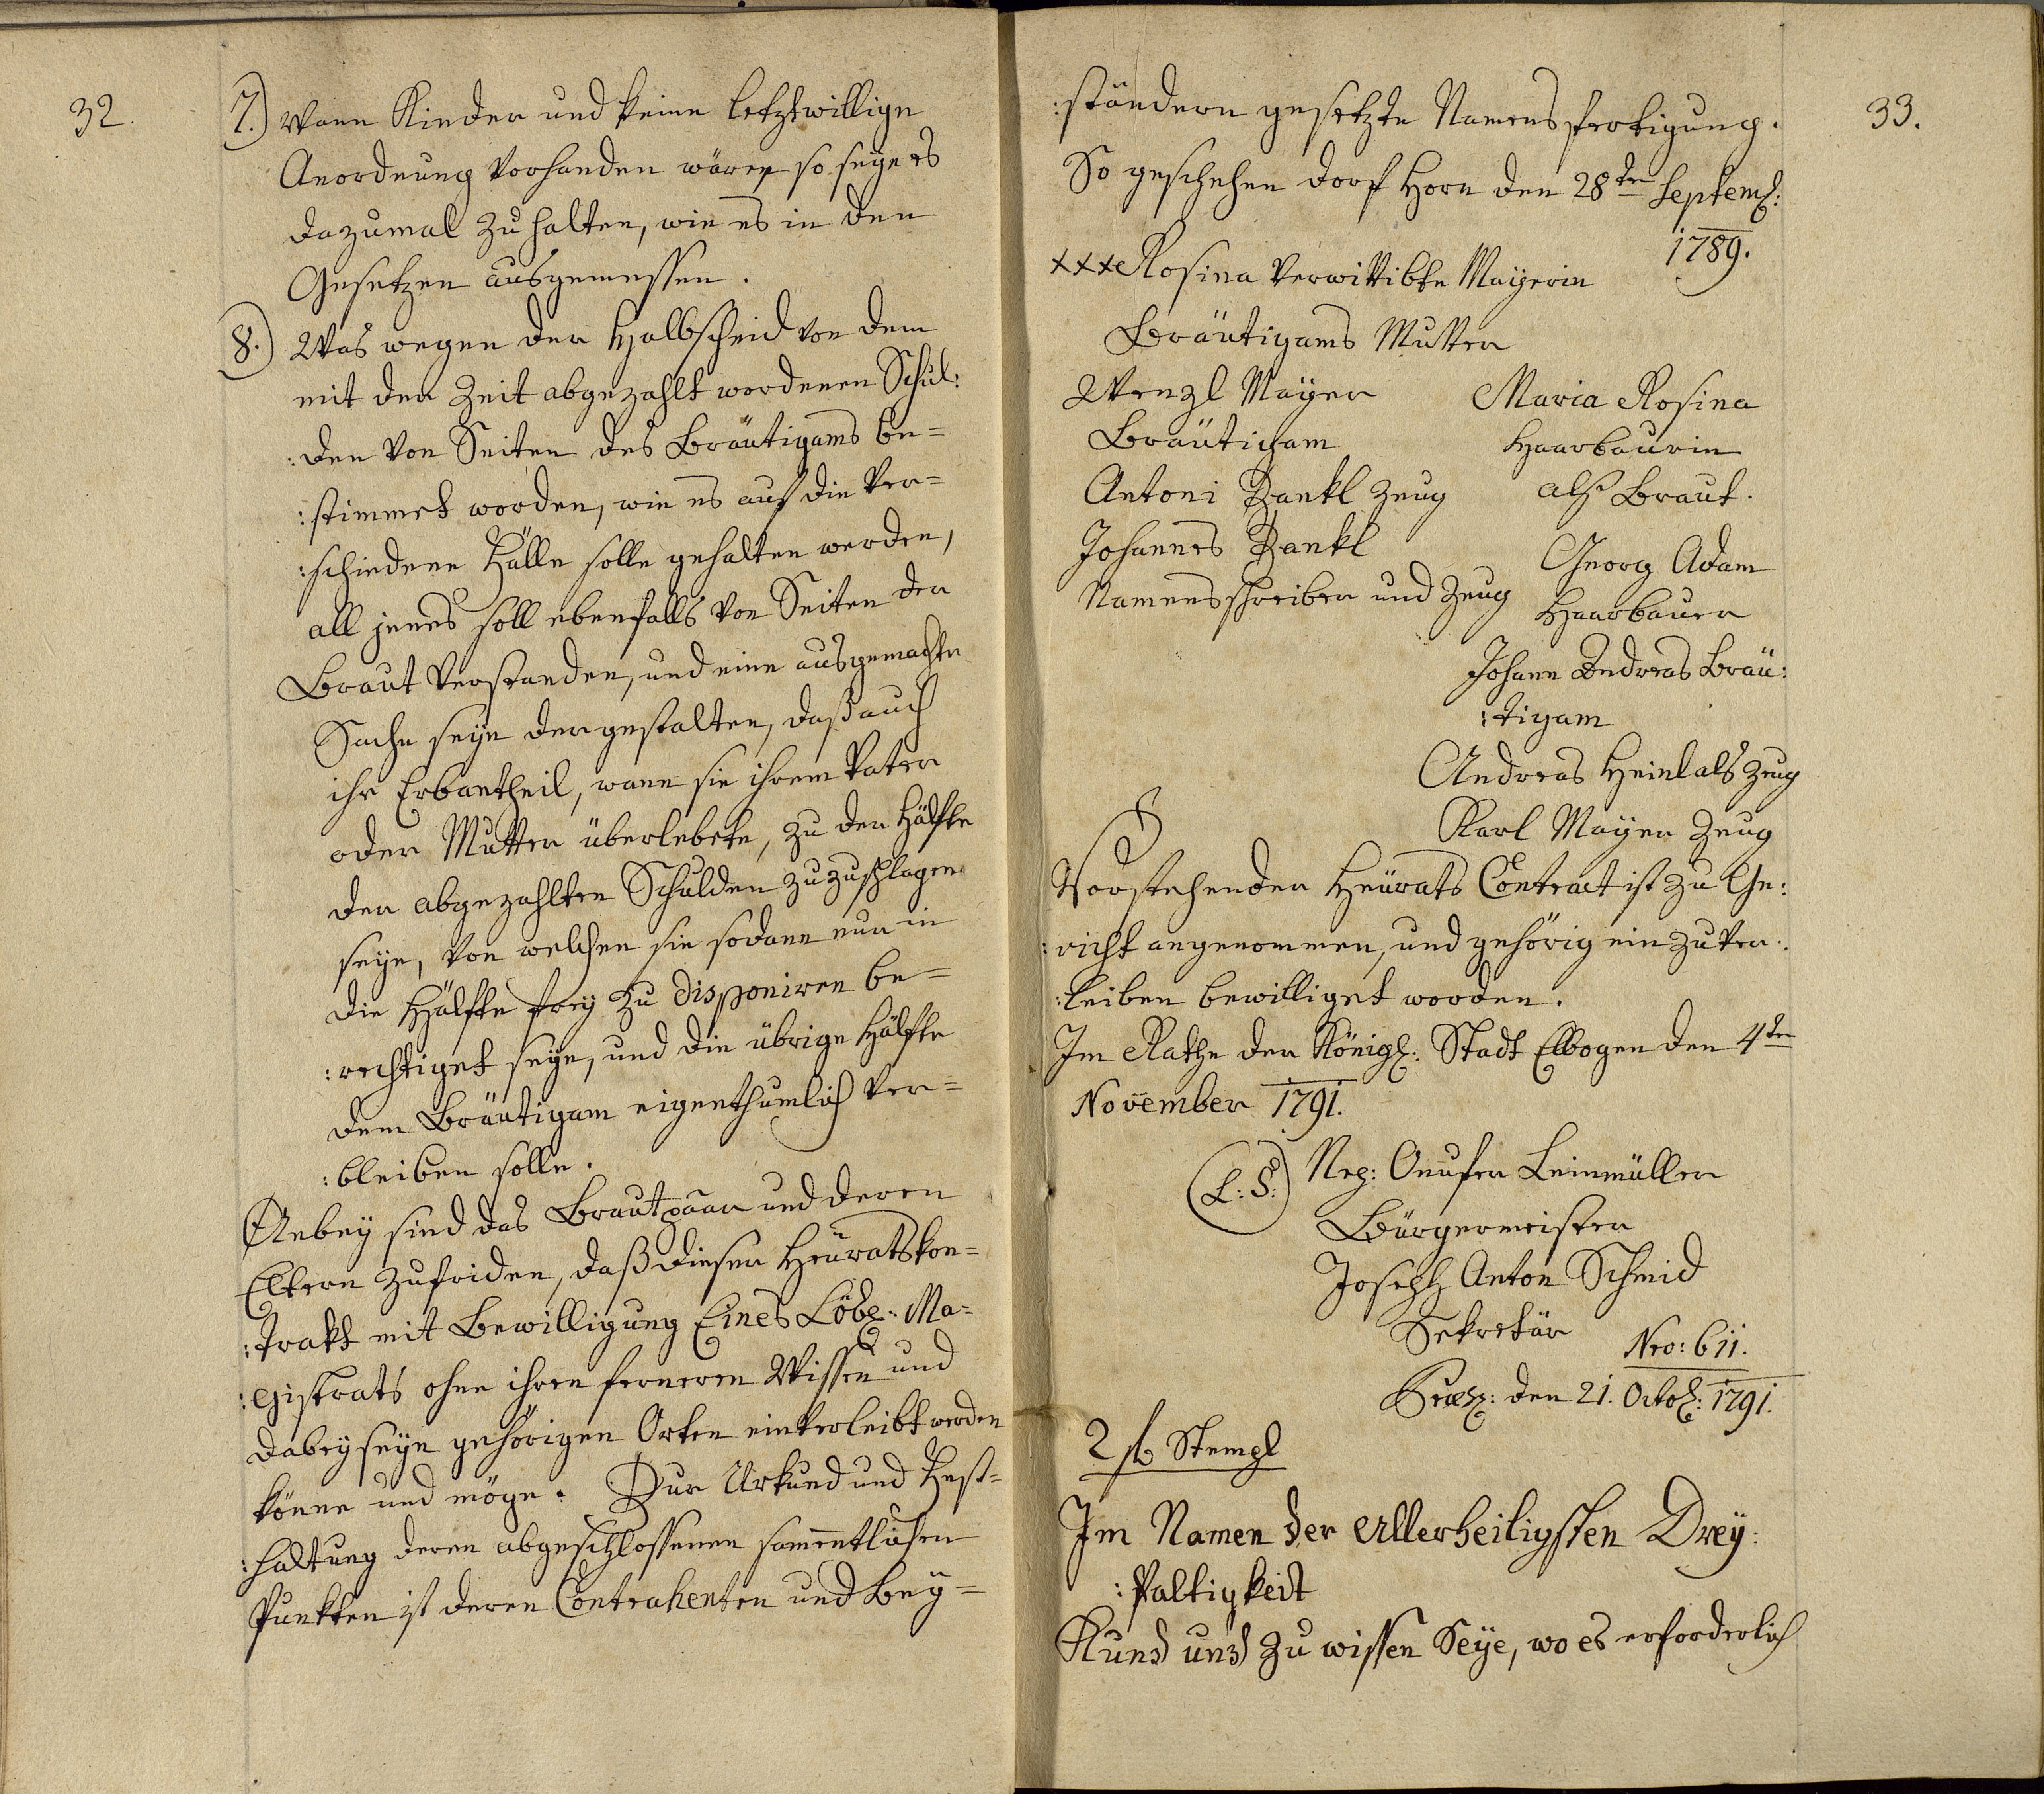 32.
7.) Wann Kinder und keine letztwillige
Anordnung vorhanden wäre, so seye es
dazumal zu halten, wie es in den
Gesetzen ausgemessen.
8.) Was wegen der Halbscheid von dem
mit der Zeit abgezahlt wordenen Schul:
:den von Seiten des Bräutigams be=
:stimmet worden, wie es auf die ver=
:schiedene Fälle solle gehalten werden,
all jenes soll ebenfalls von Seiten der
Braut verstanden, und eine ausgemachte
Sache seye dergestalten, daß auch
ihr Erbantheil, wann sie ihrem Vater
oder Mutter überlebete, zu der Hälfte
der abgezahlten Schulden zuzuschlagen
seye, von welchen sie sodann nur in
die Hälfte frey zu disponiren be=
:rechtiget seye, und die übrige Hälfte
dem Bräutigam eigenthumlich ver=
:bleiben solle.
Anbey sind das Brautpaar und deren
Eltern zufriden, daß dieser Heuratskon=
:trakt mit Bewilligung Eines Löbl: Ma=
:gistrats ohne ihren ferneren Wissen und
dabeyseyn gehörigen Orten einverleibt werden
könne und möge. Zur Urkund und Fest=
:haltung deren abgeschlossenen sammentlichen
Punkten ist deren Contrahenten und Bey=
33.
:ständern gesetzte Namensfertigung.
So geschehen Dorf Horn den 28ten Septemb:
1789.
xxx Rosina verwittibte Mayerin
Bräutigams Mutter
Wenzl Mayer
Bräutigam
Antoni Zankl Zeug
Johannes Zankl
Namensschreiber und Zeug
Maria Rosina
Haarbaurin
alß Braut.
Georg Adam
Haarbauer
Johann Andreas Bräu:
:tigam
Andreas Heinl als Zeug
Karl Mayer Zeug
Vorstehender Heurats Contract ist zu Ge:
:richt angenommen, und gehörig einzuver:
:leiben bewilliget worden.
Im Rathe der Königl: Stadt Elbogen den 4ten
November 1791.
(L:S:) Nep: Onufer Leinmüller
Bürgermeister
Joseph Anton Schmid
Sekretär
Nro: 611.
Præs: den 21. Octob: 1791.
2 f Stempl
Im Namen der Allerheiligsten Drey:
:faltigkeit
Kund und zu wissen Seye, wo es erforderlich